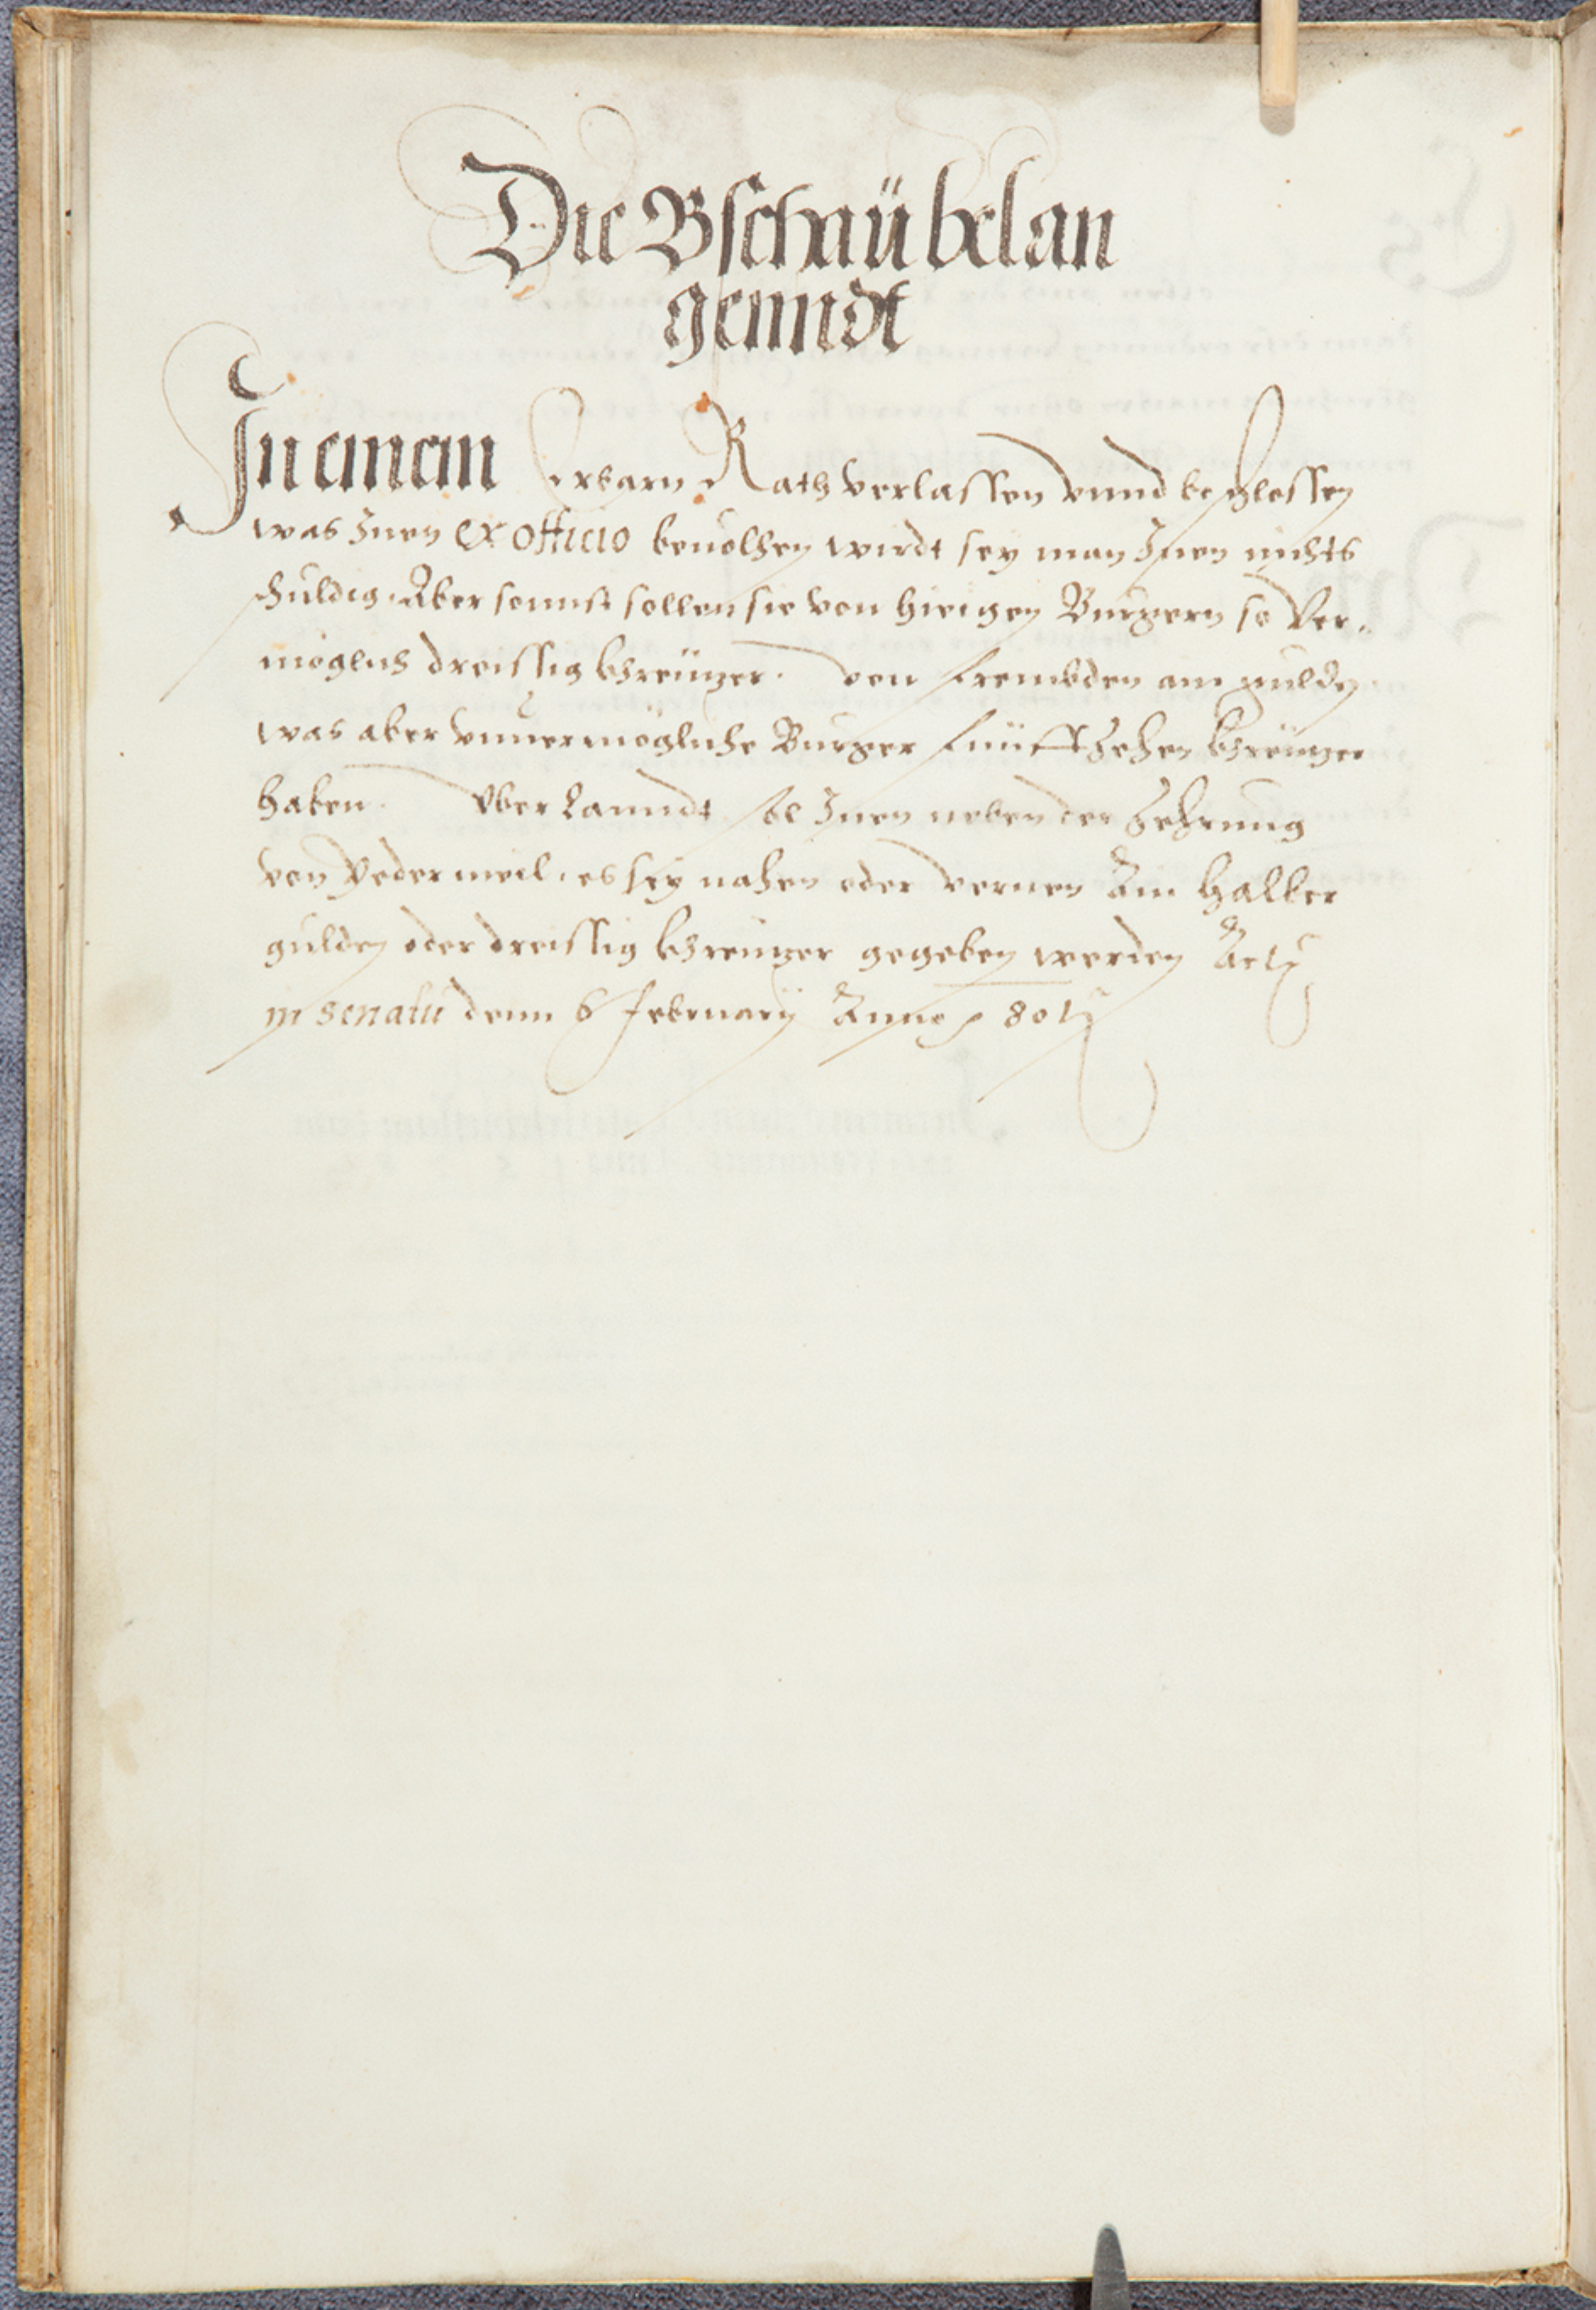 Die Bschaü belan
genndt
In ainem Erbarn Rath verlassen vnnd beschlossen
was Inen ex officio beuolhen wirdt sey man Inen nichts
schuldig. Aber sonnst sollen sie von hieigen Burgern so Ver-
möglich dreissig khreüzer. von frembden ain gulden
was aber vnuermögliche Burger fünffzehen khreüzer
haben. Vber Lanndt sol Inen neben der Zehrung
von Yeder meil, es sey nahen oder vernen Ain halber
gulden oder dreissig khreuzer gegeben werden Actum
in senatu denn 6 February Anno 80